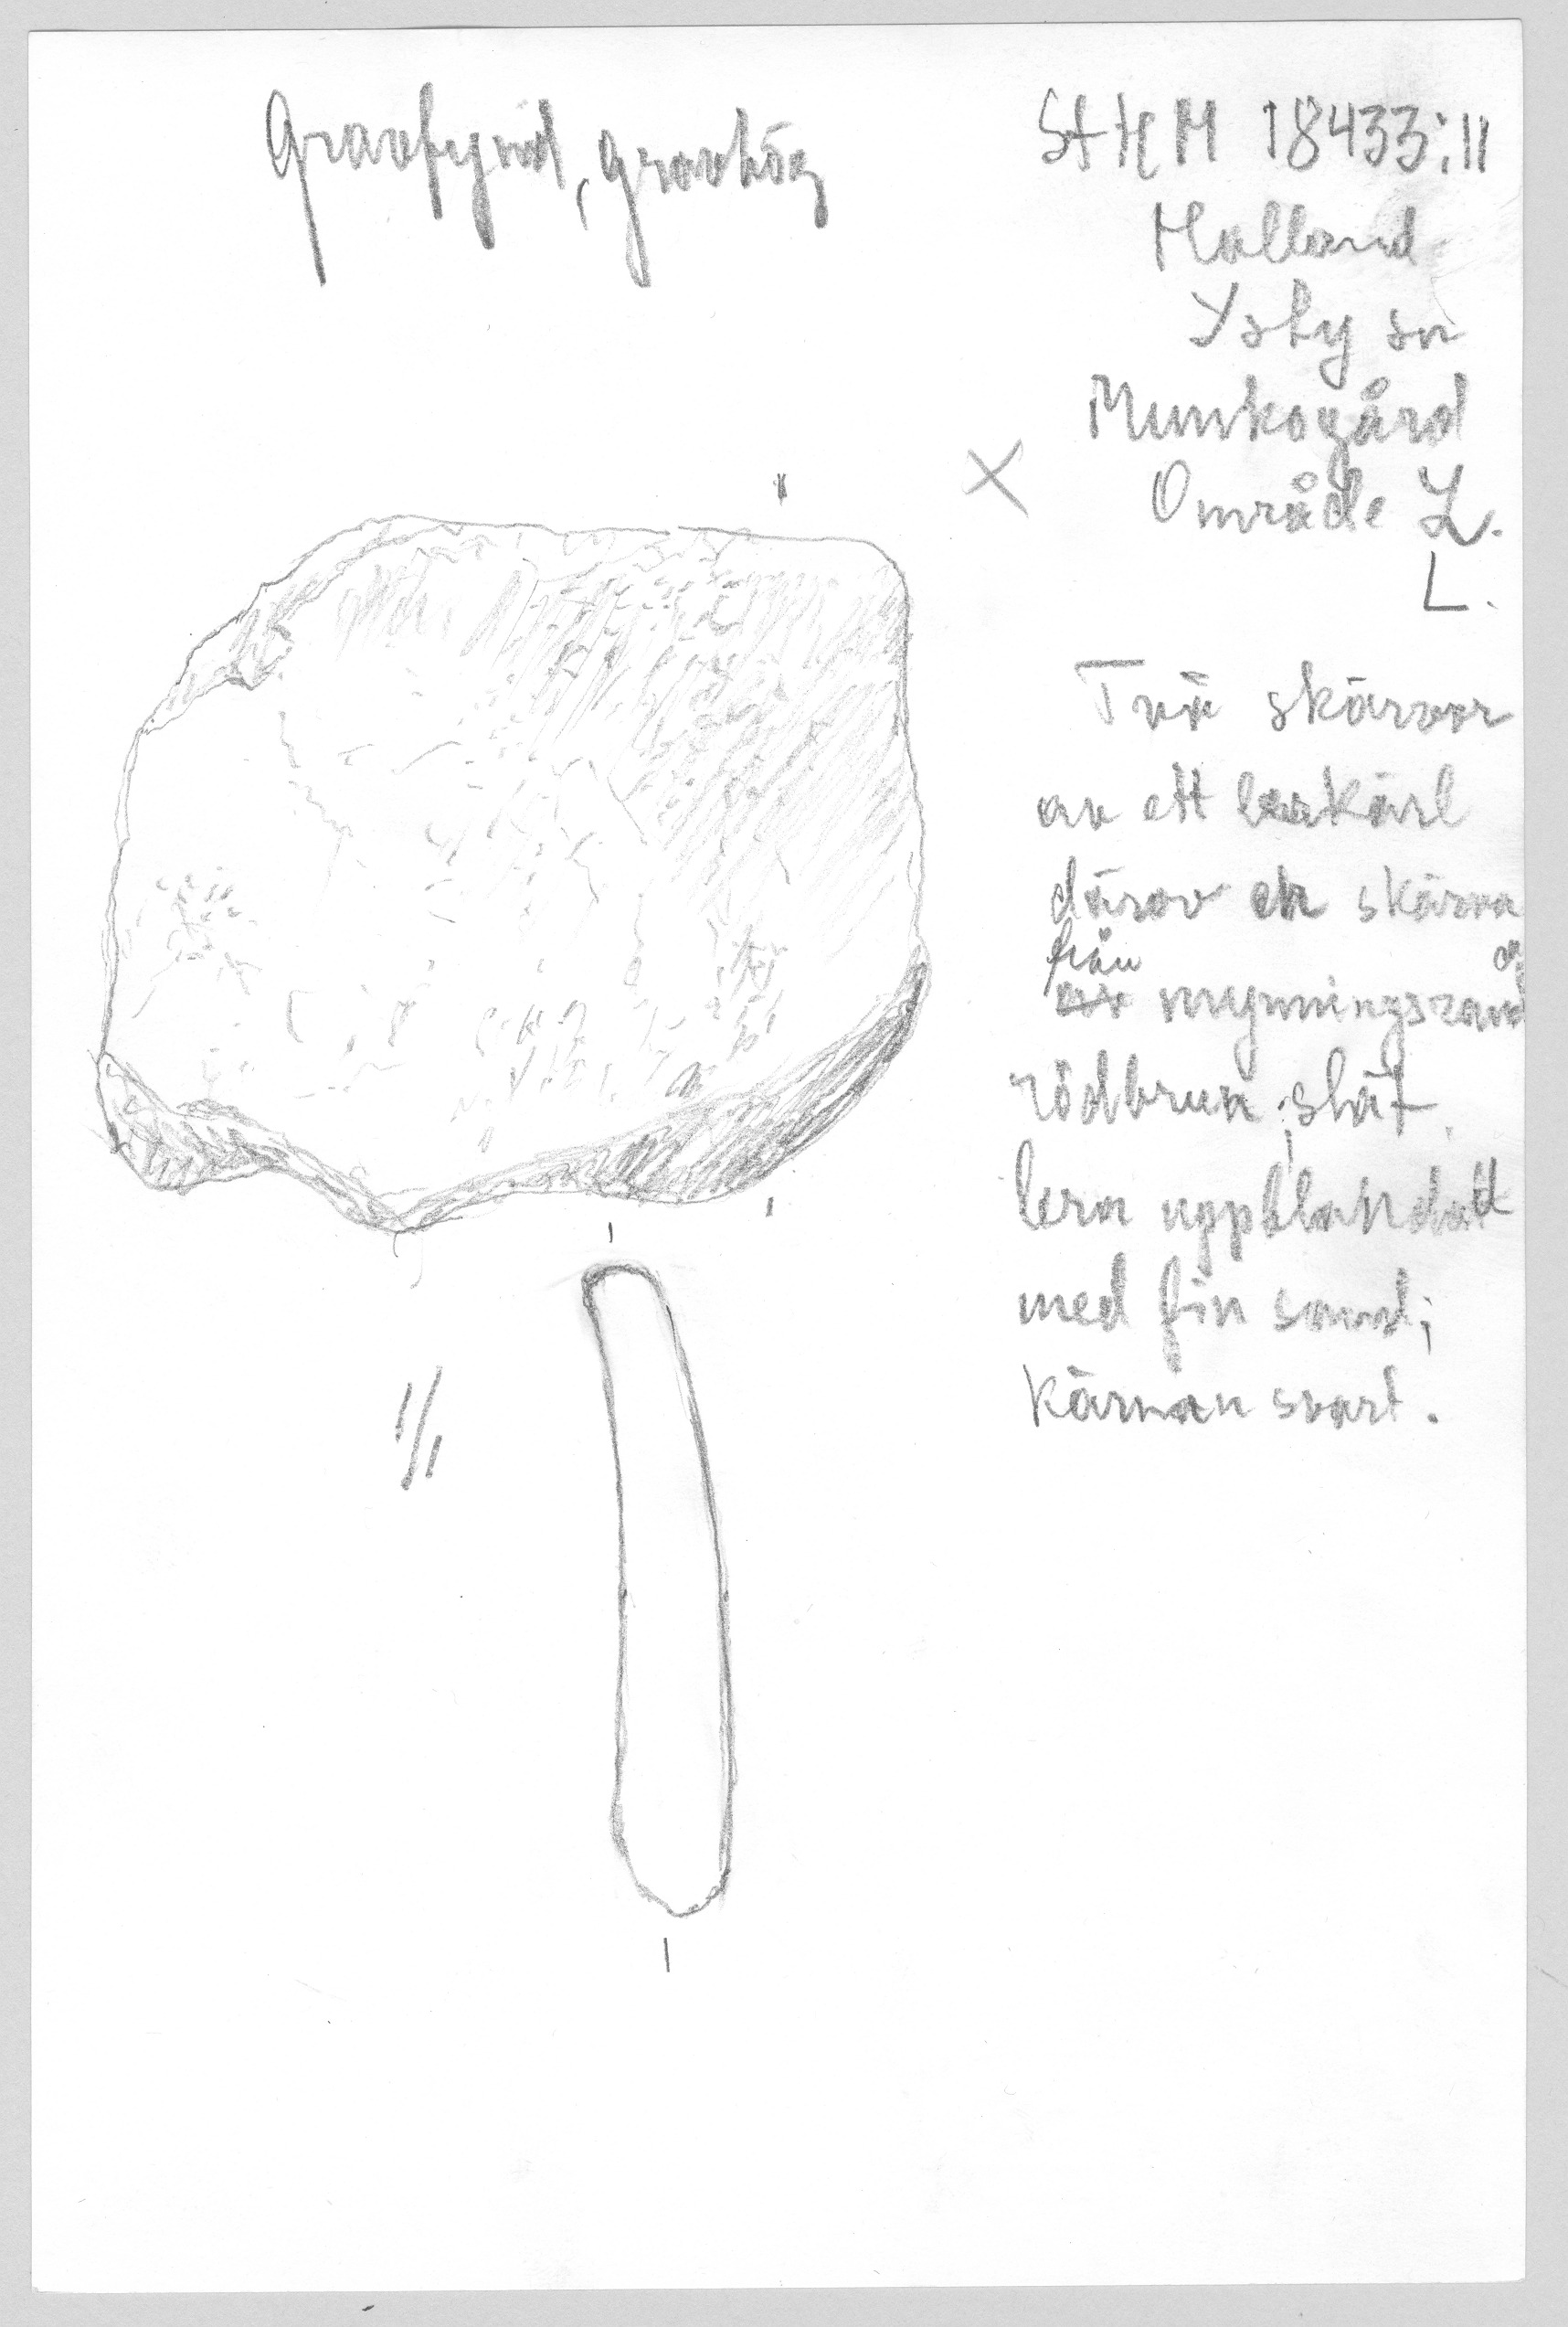 Gravfynd, gravhög
St H M 18433:11
Halland
Ysby sn
Munkagård
Område L.
L.
X
Två skärvor
av ett lerkärl
därav en skärva
från
av mynningsrand
rödbrun slät
lera uppblandatt
med fin sand;
kärnan svart.
1/1